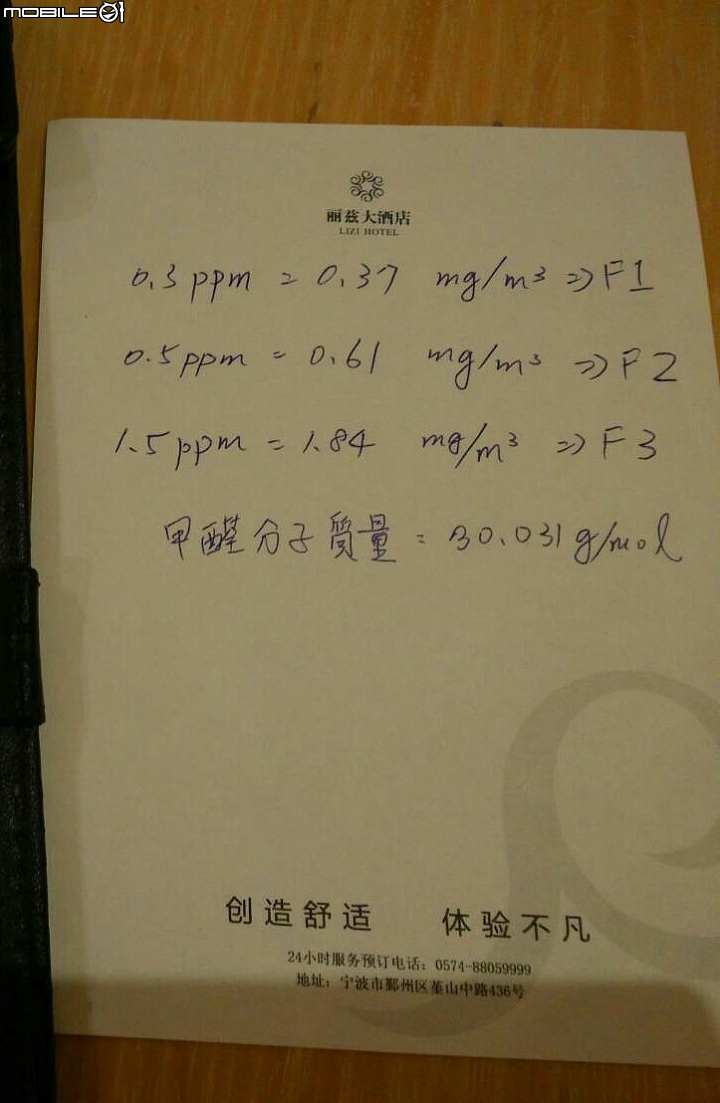 MOBILE01
丽兹大酒店
LIZI HOTEL
0.3 ppm = 0.37 mg/m³ => F1
0.5 ppm = 0.61 mg/m³ => F2
1.5 ppm = 1.84 mg/m³ => F3
甲醛分子質量 = 30.031 g/mol
创造舒适 体验不凡
24小时服务预订电话：0574-88059999
地址：宁波市鄞州区堇山中路436号